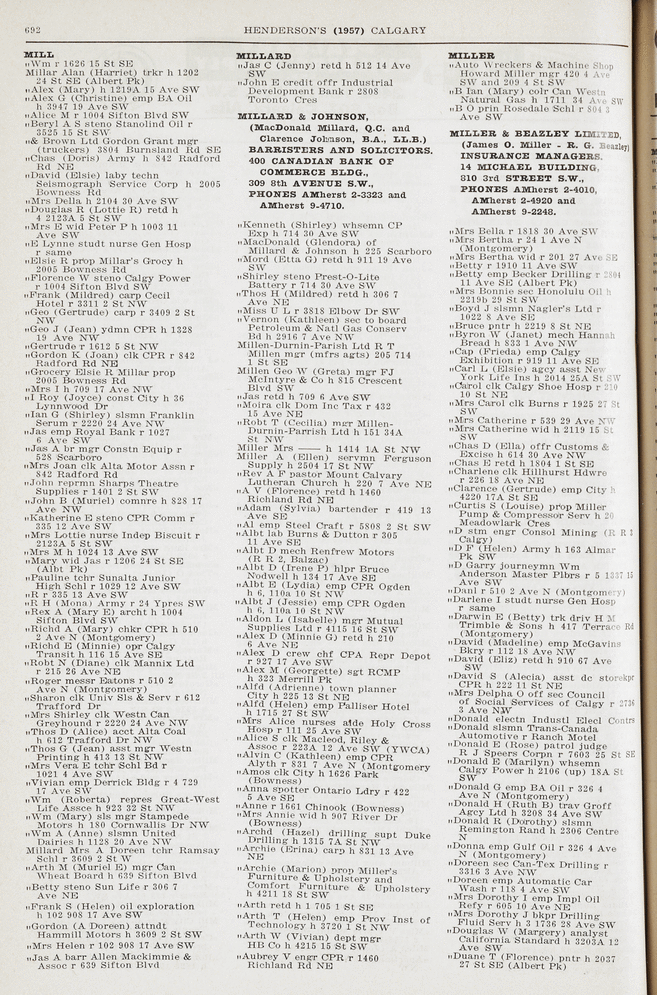 692
HENDERSON'S (1957) CALGARY
MILL
„Wm r 1626 15 St SE
Millar Alan (Harriet) trkr h 1202
24 St SE (Albert Pk)
„Alex (Mary) h 1219A 15 Ave SW
„Alex G (Christine) emp BA Oil
h 3947 19 Ave SW
„Alice M r 1004 Sifton Blvd SW
„Beryl A S steno Stanolind Oil r
3525 15 St SW
„& Brown Ltd Gordon Grant mgr
(truckers) 3804 Burnsland Rd SE
„Chas (Doris) Army h 842 Radford
Rd NE
„David (Elsie) laby techn
Seismograph Service Corp h 2005
Bowness Rd
„Mrs Della h 2104 30 Ave SW
„Douglas R (Lottie R) retd h
4 2123A 5 St SW
„Mrs E wid Peter P h 1003 11
Ave SW
„E Lynne studt nurse Gen Hosp
r same
„Elsie R prop Millar's Grocy h
2005 Bowness Rd
„Florence W steno Calgy Power
r 1004 Sifton Blvd SW
„Frank (Mildred) carp Cecil
Hotel r 3311 2 St NW
„Geo (Gertrude) carp r 3409 2 St
NW
„Geo J (Jean) ydmn CPR h 1328
19 Ave NW
„Gertrude r 1612 5 St NW
„Gordon K (Joan) clk CPR r 842
Radford Rd NE
„Grocery Elsie R Millar prop
2005 Bowness Rd
„Mrs I h 709 17 Ave NW
„I Roy (Joyce) const City h 36
Lynnwood Dr
„Ian G (Shirley) slsmn Franklin
Serum r 2220 24 Ave NW
„Jas emp Royal Bank r 1027
6 Ave SW
„Jas A br mgr Constn Equip r
528 Scarboro
„Mrs Joan clk Alta Motor Assn r
842 Radford Rd
„John reprmn Sharps Theatre
Supplies r 1401 2 St SW
„John B (Muriel) comnre h 828 17
Ave NW
„Katherine E steno CPR Comm r
335 12 Ave SW
„Mrs Lottie nurse Indep Biscuit r
2123A 5 St SW
„Mrs M h 1024 13 Ave SW
„Mary wid Jas r 1206 24 St SE
(Albt Pk)
„Pauline tchr Sunalta Junior
High Schl r 1029 12 Ave SW
„R r 335 13 Ave SW
„R H (Mona) Army r 24 Ypres SW
„Rex A (Mary E) archt h 1004
Sifton Blvd SW
„Richd A (Mary) chkr CPR h 510
2 Ave N (Montgomery)
„Richd E (Minnie) opr Calgy
Transit h 116 15 Ave SE
„Robt N (Diane) clk Mannix Ltd
r 215 26 Ave NE
„Roger messr Eatons r 510 2
Ave N (Montgomery)
„Sharon clk Univ Sls & Serv r 612
Trafford Dr
„Mrs Shirley clk Westn Can
Greyhound r 2220 24 Ave NW
„Thos D (Alice) acct Alta Coal
h 612 Trafford Dr NW
„Thos G (Jean) asst mgr Westn
Printing h 413 13 St NW
„Mrs Vera E tchr Schl Bd r
1021 4 Ave SW
„Vivian emp Derrick Bldg r 4 729
17 Ave SW
„Wm (Roberta) repres Great-West
Life Assce h 923 32 St NW
„Wm (Mary) sls mgr Stampede
Motors h 180 Cornwallis Dr NW
„Wm A (Anne) slsmn United
Dairies h 1128 20 Ave NW
Millard Mrs A Doreen tchr Ramsay
Schl r 3609 2 St W
„Arth M (Muriel E) mgr Can
Wheat Board h 639 Sifton Blvd
„Betty steno Sun Life r 306 7
Ave NE
„Frank S (Helen) oil exploration
h 102 908 17 Ave SW
„Gordon (A Doreen) attndt
Hammill Motors h 3609 2 St SW
„Mrs Helen r 102 908 17 Ave SW
„Jas A barr Allen Mackimmie &
Assoc r 639 Sifton Blvd
MILLARD
„Jas C (Jenny) retd h 512 14 Ave
SW
„John E credit offr Industrial
Development Bank r 2808
Toronto Cres
MILLARD & JOHNSON,
(MacDonald Millard, Q.C. and
Clarence Johnson, B.A., LL.B.)
BARRISTERS AND SOLICITORS.
400 CANADIAN BANK OF
COMMERCE BLDG.,
309 8th AVENUE S.W.,
PHONES AMherst 2-3323 and
AMherst 9-4710.
„Kenneth (Shirley) whsemn CP
Exp h 714 30 Ave SW
„MacDonald (Glendora) of
Millard & Johnson h 225 Scarboro
„Mord (Etta G) retd h 911 19 Ave
SW
„Shirley steno Prest-O-Lite
Battery r 714 30 Ave SW
„Thos H (Mildred) retd h 306 7
Ave NE
„Miss U L r 3818 Elbow Dr SW
„Vernon (Kathleen) sec to board
Petroleum & Natl Gas Conserv
Bd h 2916 7 Ave NW
Millen-Durnin-Parish Ltd R T
Millen mgr (mfrs agts) 205 714
1 St SE
Millen Geo W (Greta) mgr FJ
McIntyre & Co h 815 Crescent
Blvd SW
„Jas retd h 709 6 Ave SW
„Moira clk Dom Inc Tax r 432
15 Ave NE
„Robt T (Cecilia) mgr Millen-
Durnin-Parish Ltd h 151 34A
St NW
Miller Mrs —— h 1414 1A St NW
Miller A (Ellen) servmn Ferguson
Supply h 2504 17 St NW
„Rev A F pastor Mount Calvary
Lutheran Church h 220 7 Ave NE
„A V (Florence) retd h 1460
Richland Rd NE
„Adam (Sylvia) bartender r 419 13
Ave SE
„Al emp Steel Craft r 5808 2 St SW
„Albt lab Burns & Dutton r 305
11 Ave SE
„Albt D mech Renfrew Motors
(R R 2, Balzac)
„Albt D (Irene P) hlpr Bruce
Nodwell h 134 17 Ave SE
„Albt E (Lydia) emp CPR Ogden
h 6, 110a 10 St NW
„Albt J (Jessie) emp CPR Ogden
h 6, 110a 10 St NW
„Aldon L (Isabelle) mgr Mutual
Supplies Ltd r 4115 16 St SW
„Alex D (Minnie G) retd h 210
6 Ave NE
„Alex D crew chf CPA Repr Depot
r 927 17 Ave SW
„Alex M (Georgette) sgt RCMP
h 323 Merrill Pk
„Alfd (Adrienne) town planner
City h 225 13 St NE
„Alfd (Helen) emp Palliser Hotel
h 1715 27 St SW
„Mrs Alice nurses aide Holy Cross
Hosp r 111 25 Ave SW
„Alice S clk Macleod, Riley &
Assoc r 223A 12 Ave SW (YWCA)
„Alvin C (Kathleen) emp CPR
Alyth r 831 7 Ave N (Montgomery)
„Amos clk City h 1626 Park
(Bowness)
„Anna spotter Ontario Ldry r 422
5 Ave SE
„Anne r 1661 Chinook (Bowness)
„Mrs Annie wid h 907 River Dr
(Bowness)
„Archd (Hazel) drilling supt Duke
Drilling h 1315 7A St NW
„Archie (Erina) carp h 831 13 Ave
NE
„Archie (Marion) prop Miller's
Furniture & Upholstery and
Comfort Furniture & Upholstery
h 4211 18 St SW
„Arth retd h 1 705 1 St SE
„Arth T (Helen) emp Prov Inst of
Technology h 3720 1 St NW
„Arth W (Vivian) dept mgr
HB Co h 4215 15 St SW
„Aubrey V engr CPR r 1460
Richland Rd NE
MILLER
„Auto Wreckers & Machine Shop
Howard Miller mgr 420 4 Ave
SW and 209 4 St SW
„B Ian (Mary) colr Can Westn
Natural Gas h 1711 34 Ave SW
„B O prin Rosedale Schl r 804 3
Ave SW
MILLER & BEAZLEY LIMITED,
(James O. Miller - R. G. Beazley)
INSURANCE MANAGERS.
14 MICHAEL BUILDING,
810 3rd STREET S.W.,
PHONES AMherst 2-4010,
AMherst 2-4920 and
AMherst 9-2248.
„Mrs Bella r 1818 30 Ave SW
„Mrs Bertha r 24 1 Ave N
(Montgomery)
„Mrs Bertha wid r 201 27 Ave SE
„Betty r 1910 11 Ave SW
„Betty emp Becker Drilling r 2804
11 Ave SE (Albert Pk)
„Mrs Bonnie sec Honolulu Oil h
2219b 29 St SW
„Boyd J slsmn Nagler's Ltd r
1022 8 Ave SE
„Bruce pntr h 2219 8 St NE
„Byron W (Janet) mech Hannah
Bread h 833 1 Ave NW
„Cap (Frieda) emp Calgy
Exhibition r 919 11 Ave SE
„Carl L (Elsie) agcy asst New
York Life Ins h 2014 25A St SW
„Carol clk Calgy Shoe Hosp r 210
10 St NE
„Mrs Carol clk Burns r 1925 27 St
SW
„Mrs Catherine r 539 29 Ave NW
„Mrs Catherine wid h 2119 15 St
SW
„Chas D (Ella) offr Customs &
Excise h 614 30 Ave NW
„Chas E retd h 1804 1 St SE
„Charlene clk Hillhurst Hdwre
r 226 18 Ave NE
„Clarence (Gertrude) emp City h
4220 17A St SE
„Curtis S (Louise) prop Miller
Pump & Compressor Serv h 20
Meadowlark Cres
„D stm engr Consol Mining (R R 3
Calgy)
„D F (Helen) Army h 163 Almar
Pk SW
„D Garry journeymn Wm
Anderson Master Plbrs r 5 1337 15
Ave SW
„Danl r 510 2 Ave N (Montgomery)
„Darlene I studt nurse Gen Hosp
r same
„Darwin E (Betty) trk driv H M
Trimble & Sons h 417 Terrace Rd
(Montgomery)
„David (Madeline) emp McGavins
Bkry r 112 18 Ave NW
„David (Eliz) retd h 910 67 Ave
SW
„David S (Alecia) asst dc storekpr
CPR h 222 11 St NE
„Mrs Delpha O off sec Council
of Social Services of Calgy r 2736
3 Ave NW
„Donald electn Industl Elecl Contrs
„Donald slsmn Trans-Canada
Automotive r Ranch Motel
„Donald E (Rose) patrol judge
R J Speers Corpn r 7603 25 St SE
„Donald E (Marilyn) whsemn
Calgy Power h 2106 (up) 18A St
SW
„Donald G emp BA Oil r 326 4
Ave N (Montgomery)
„Donald H (Ruth B) trav Groff
Agcy Ltd h 3208 34 Ave SW
„Donald R (Dorothy) slsmn
Remington Rand h 2306 Centre
N
„Donna emp Gulf Oil r 326 4 Ave
N (Montgomery)
„Doreen sec Can-Tex Drilling r
3316 3 Ave NW
„Doreen emp Automatic Car
Wash r 118 4 Ave SW
„Mrs Dorothy I emp Impl Oil
Refy r 605 10 Ave NE
„Mrs Dorothy J bkpr Drilling
Fluid Serv h 3 1736 28 Ave SW
„Douglas W (Margery) analyst
California Standard h 3203A 12
Ave SW
„Duane T (Florence) pntr h 2037
27 St SE (Albert Pk)